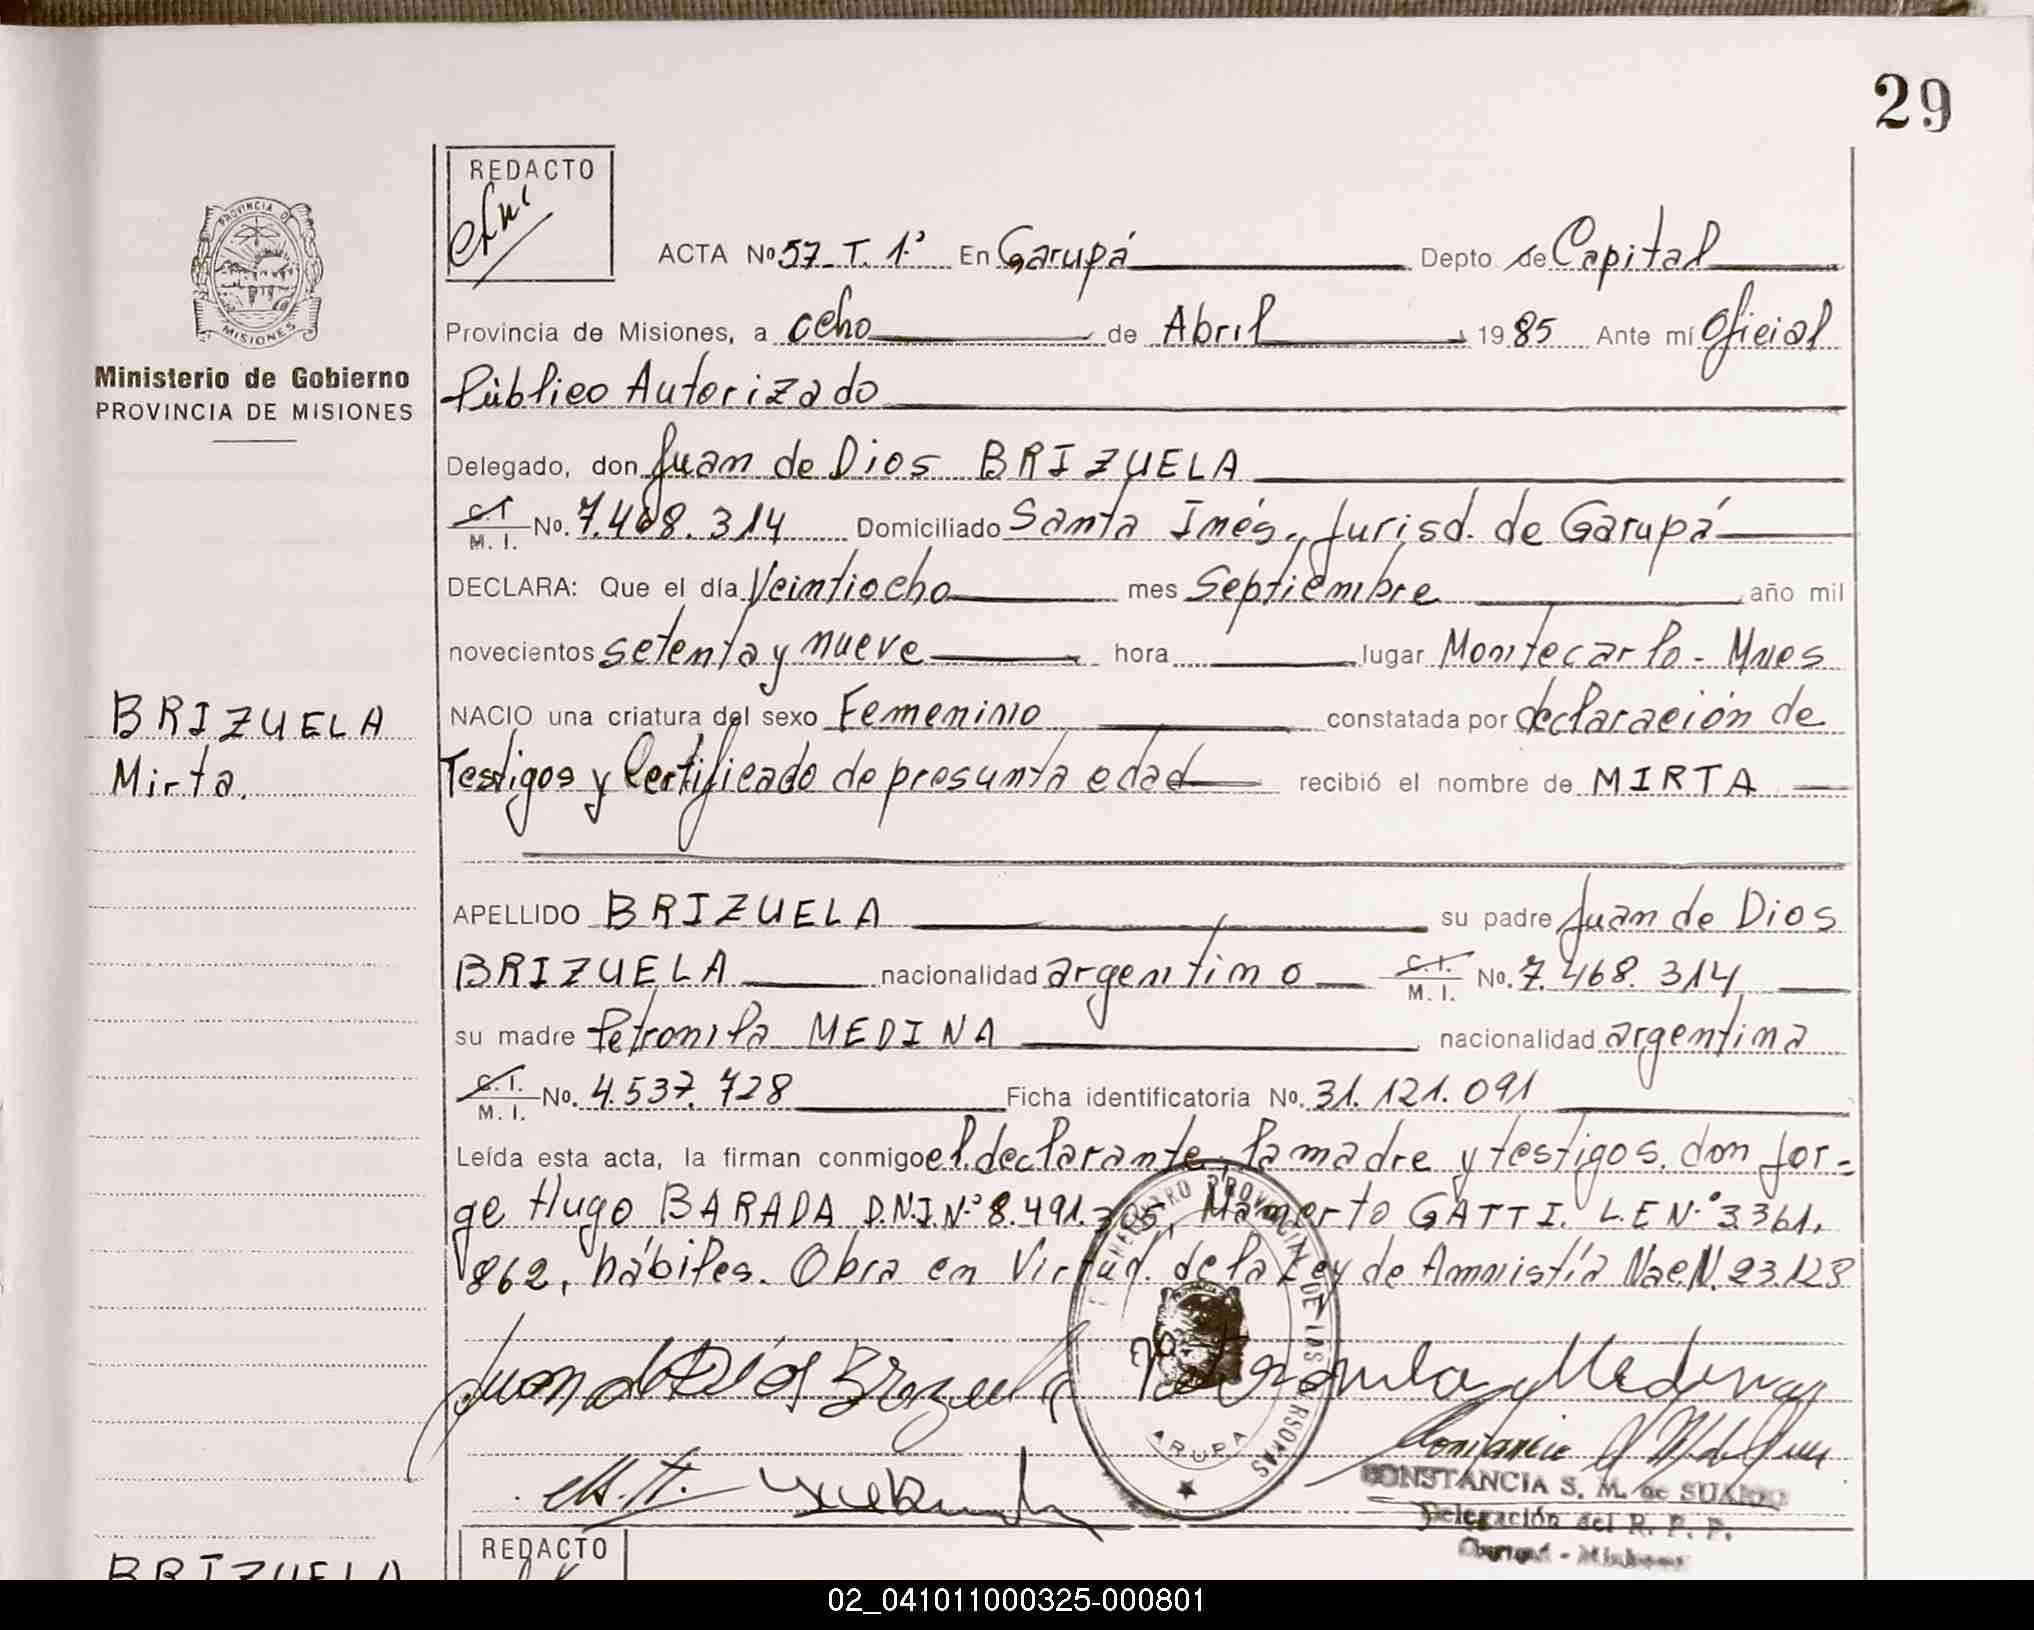 29
REDACTO
PROVINCIA D
MISIONES
Ministerio de Gobierno
PROVINCIA DE MISIONES
ACTA No 57-T. 1º En Garupá Depto de Capital
Provincia de Misiones, a ocho de Abril 1985 Ante mí Oficial
Público Autorizado
Delegado, don Juan de Dios BRIZUELA
C.I. M. I. No. 7.468.314 Domiciliado Santa Inés, Jurisd. de Garupá
DECLARA: Que el día Veintiocho mes Septiembre año mil
novecientos setenta y nueve hora lugar Montecarlo - Mnes
BRIZUELA
Mirta.
NACIO una criatura del sexo Femenino constatada por declaración de
Testigos y Certificado de presunta edad recibió el nombre de MIRTA
APELLIDO BRIZUELA su padre Juan de Dios
BRIZUELA nacionalidad argentino C.I. M. I. No. 7.468.314
su madre Petronila MEDINA nacionalidad argentina
C.I. M. I. No. 4.537.728 Ficha identificatoria No. 31.121.091
Leída esta acta, la firman conmigo el declarante, la madre y testigos. don Jor=
ge Hugo BARADA D.N.I.Nº 8.491.305, Mamerto GATTI. L.E Nº 3.361.
862, hábiles. Obra en Virtud de la Ley de Amnistía Nac N. 23.128
Juan de Dios Brizuela Petronila Medina
REGISTRO PROVINCIAL DE LAS PERSONAS
GARUPA
CONSTANCIA S. M. de
Delegación del R. P. P.
Garupá - Misiones
REDACTO
BRIZUELA
02_041011000325-000801